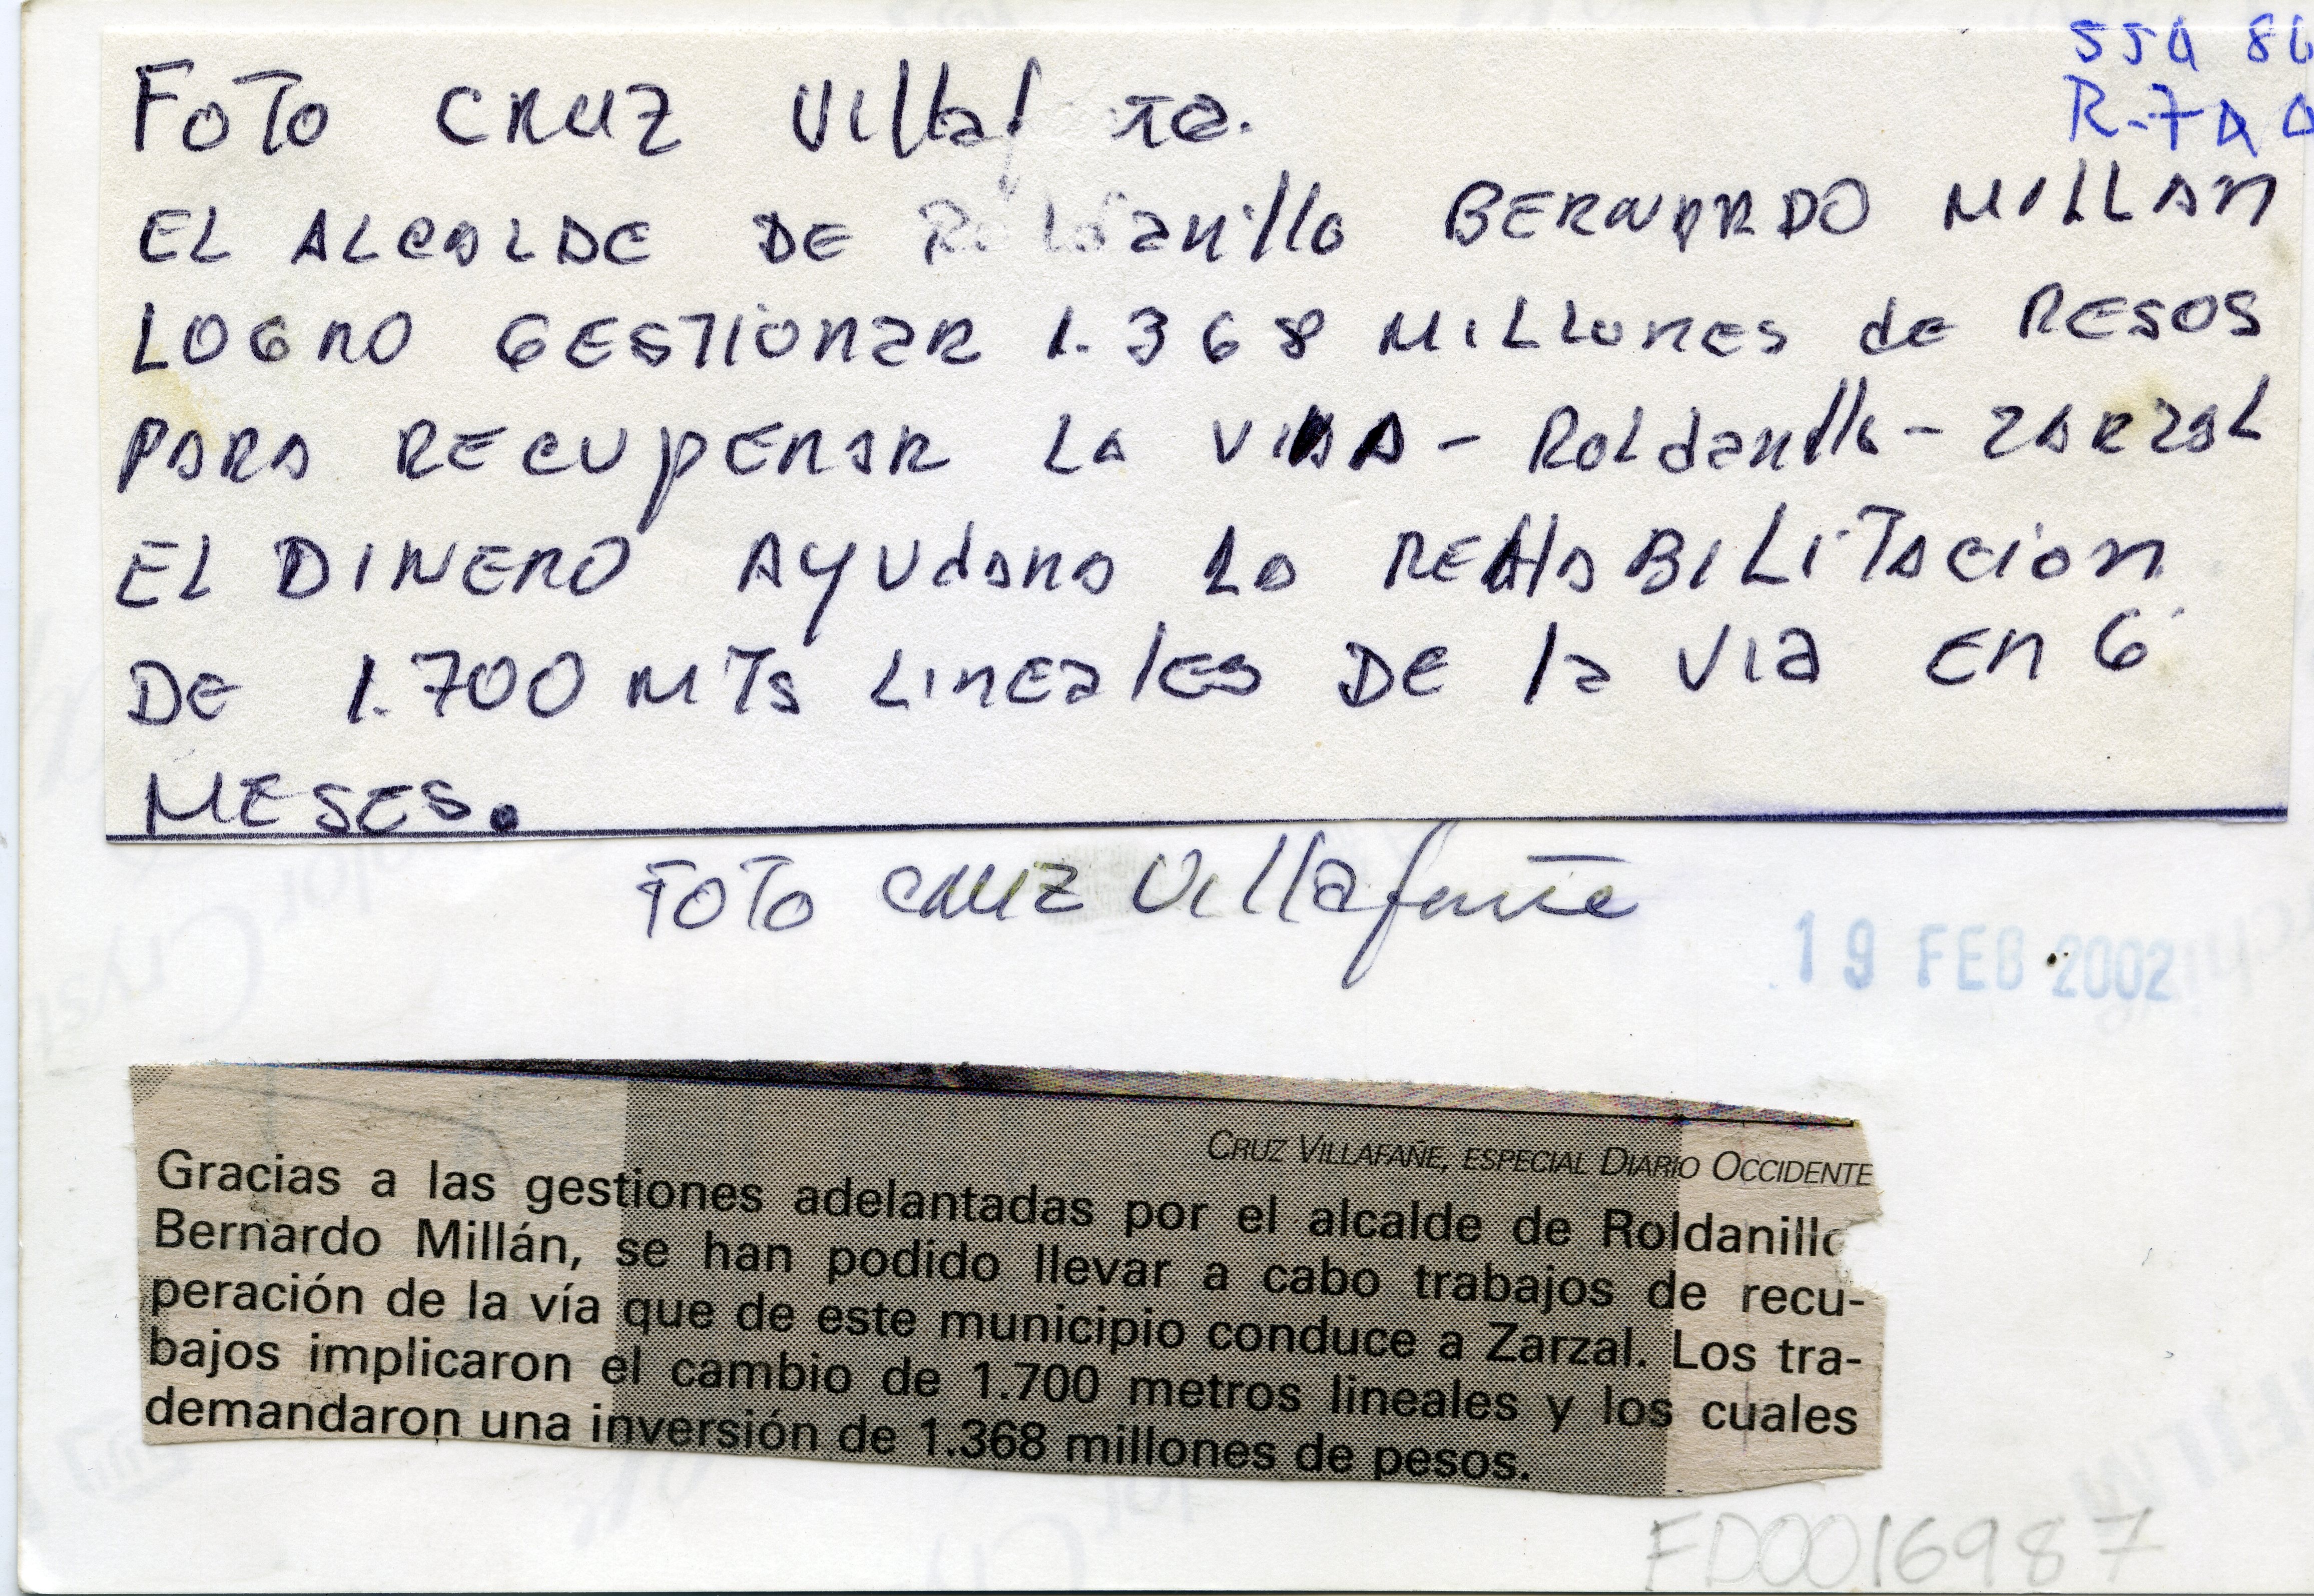 FOTO CRUZ Villafañe.
EL ALCALDE DE Roldanillo BERNARDO MILLAN
LOGRO GESTIONAR 1.368 MILLONES de PESOS
PARA RECUPERAR LA VIA - RoLdanillo - ZARZAL
EL DINERO AYUdARA LA REHABILITACION
DE 1.700 MTs LINEales DE la VIa EN 6
MESES.
FOTO CRUZ Villafañe
19 FEB 2002
CRUZ VILLAFAÑE, ESPECIAL DIARIO OCCIDENTE
Gracias a las gestiones adelantadas por el alcalde de Roldanillo
Bernardo Millán, se han podido llevar a cabo trabajos de recu-
peración de la vía que de este municipio conduce a Zarzal. Los tra-
bajos implicaron el cambio de 1.700 metros lineales y los cuales
demandaron una inversión de 1.368 millones de pesos.
FD0016987